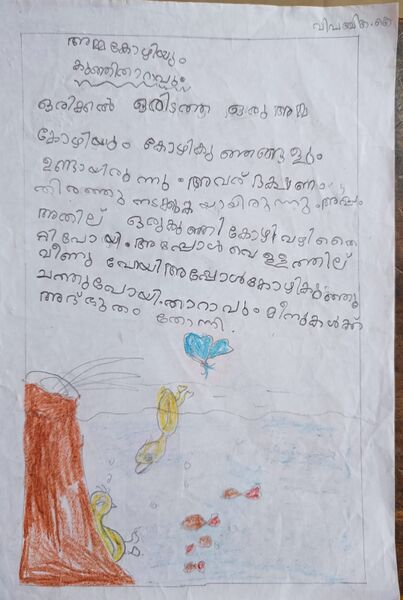 വിപഞ്ചിക. കെ
അമ്മകോഴിയും
കുഞ്ഞിതാറാവും
ഒരിക്കൽ ഒരിടത്ത് ഒരു അമ്മ
കോഴിയും കോഴികുഞ്ഞുങ്ങളും
ഉണ്ടായിരുന്നു. അവര് ഭക്ഷണം
തിരഞ്ഞു നടക്കുകയായിരുന്നു. അപ്പം
അതില് ഒരു കുഞ്ഞി കോഴി വഴി തെ
റ്റി പോയി. അപ്പോൾ വെള്ളത്തില്
വീണു പോയി അപ്പോൾ കോഴികുഞ്ഞു
ചത്തുപോയി. താറാവും മീനുകൾക്ക്
അദ്ഭുതം തോന്നി.